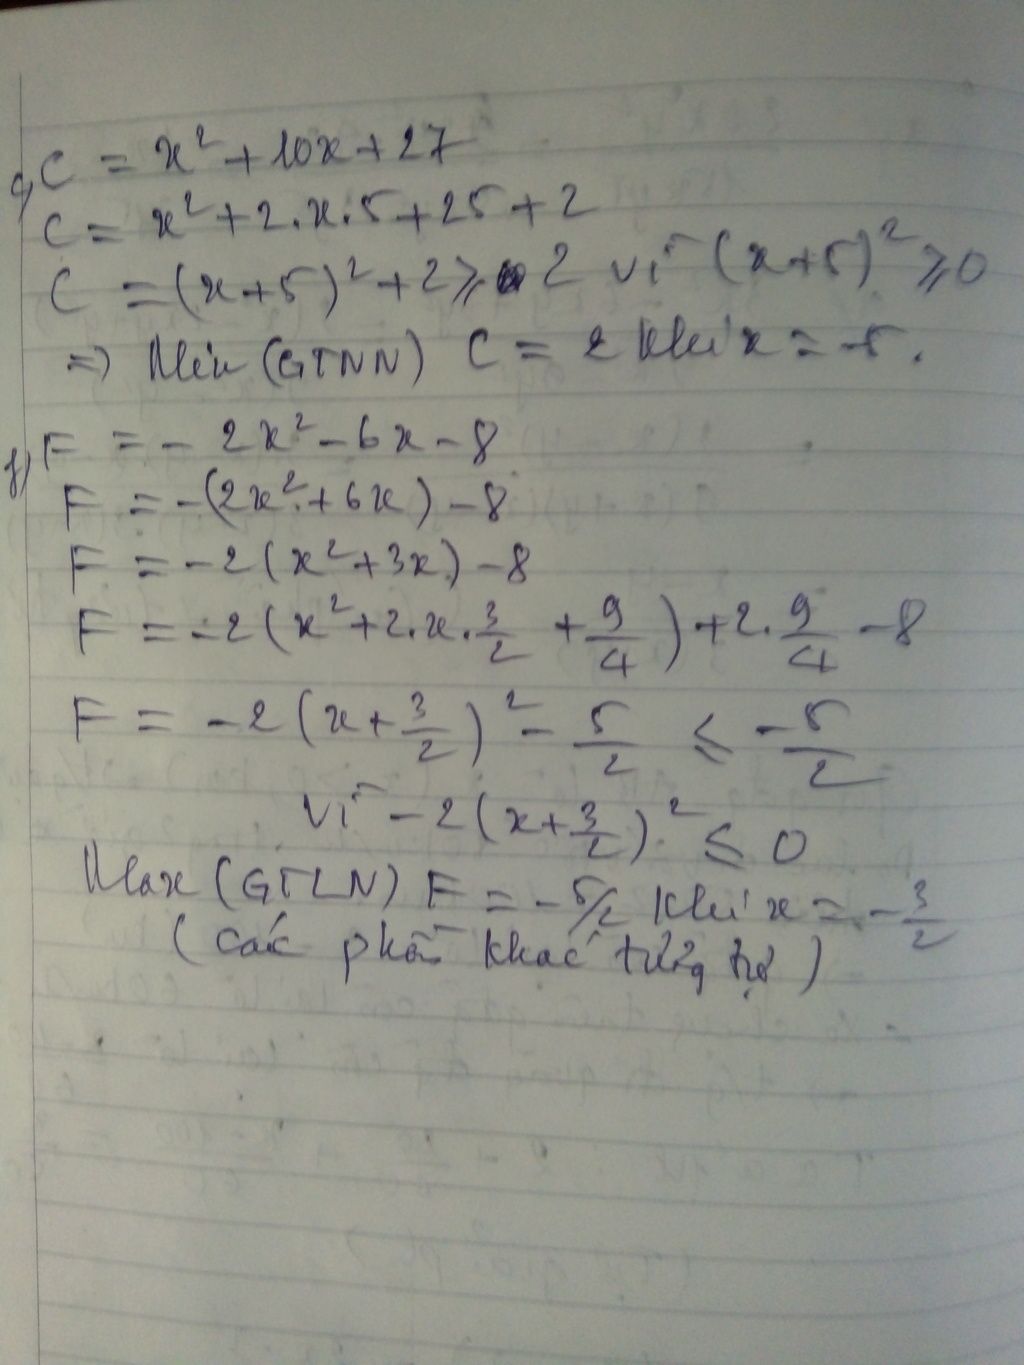 c, C = x² + 10x + 27
C = x² + 2.x.5 + 25 + 2
C = (x+5)² + 2 ≥ 2 vì (x+5)² ≥ 0
=> Min (GTNN) C = 2 khi x = -5.
f) F = - 2x² - 6x - 8
F = -(2x² + 6x) - 8
F = -2(x² + 3x) - 8
F = -2(x² + 2.x.3/2 + 9/4) + 2.9/4 - 8
F = -2(x + 3/2)² - 5/2 ≤ -5/2
vì -2(x + 3/2)² ≤ 0
Max (GTLN) F = -5/2 khi x = -3/2
(các phần khác tương tự)